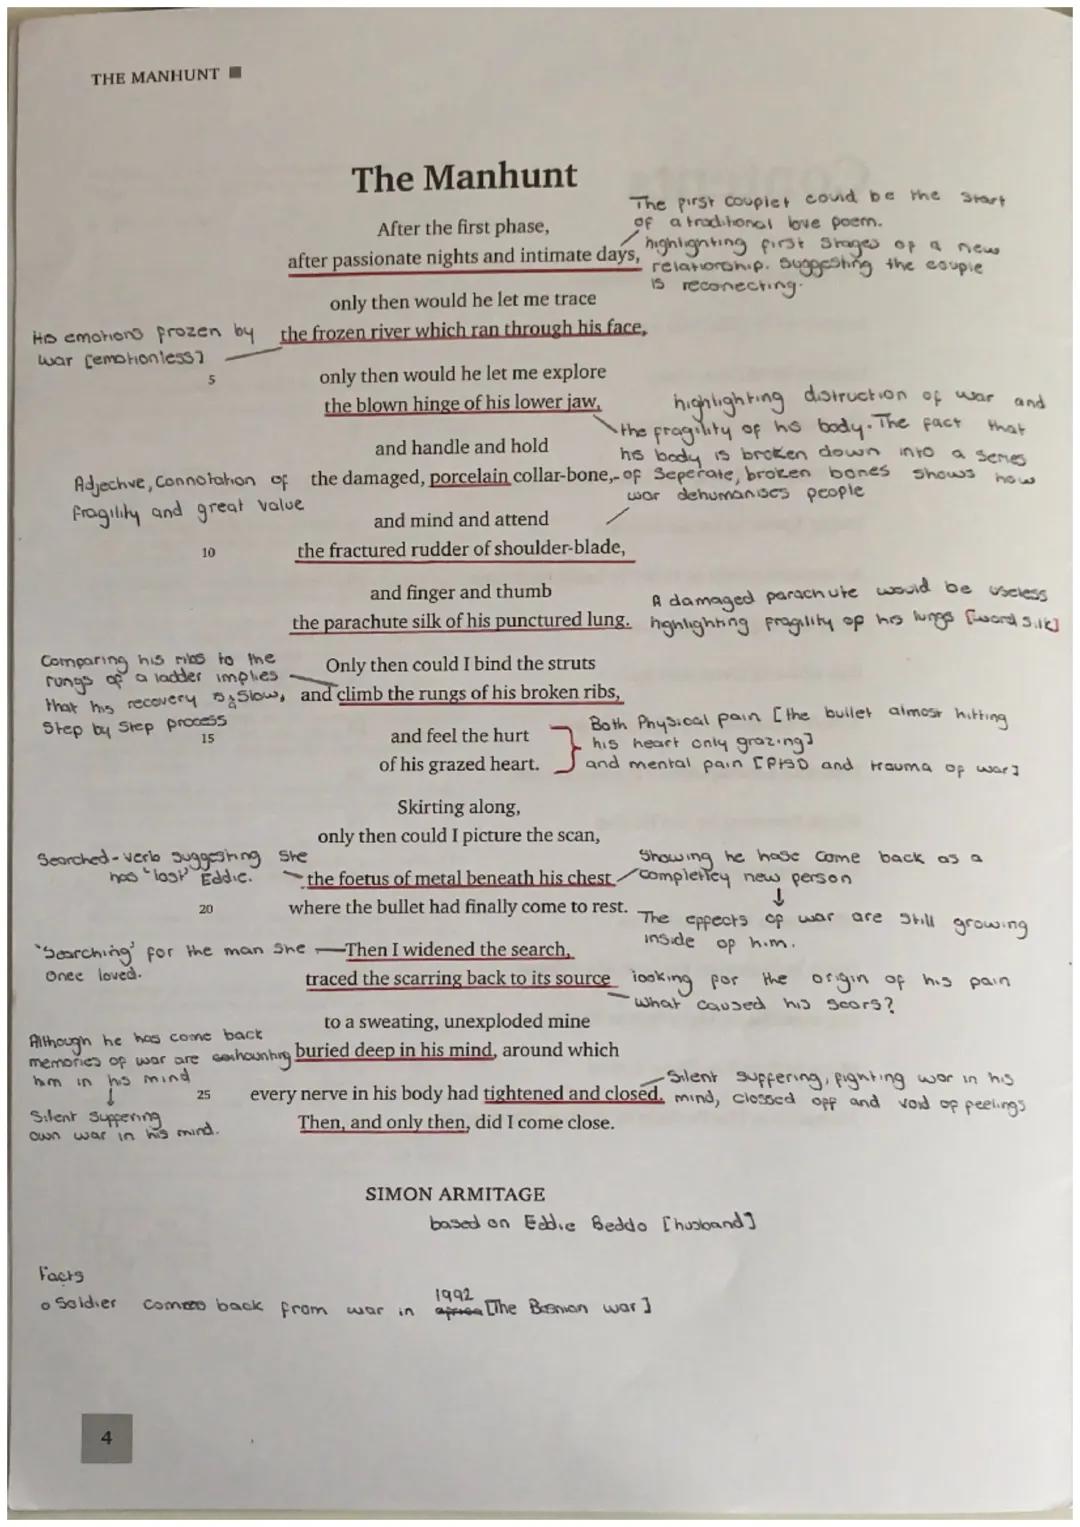 THE MANHUNT
The Manhunt
The first couplet could be the start
of a traditional love poem.
highlighting first stages of a new
relationship. Suggesting the couple
is reconecting.
After the first phase,
after passionate nights and intimate days,
only then would he let me trace
the frozen river which ran through his face,
His emotions frozen by
war [emotionless]
5
only then would he let me explore
the blown hinge of his lower jaw,
highlighting distruction of war and
the fragility of his body. The fact that
his body is broken down into a series
of Seperate, broken bones shows how
war dehumanises people
and handle and hold
the damaged, porcelain collar-bone,
Adjective, Connotation of
fragility and great value
and mind and attend
10
the fractured rudder of shoulder-blade,
and finger and thumb
the parachute silk of his punctured lung.
A damaged parachute would be useless
highlighting fragility of his lungs [word silk]
Comparing his ribs to the
rungs of a ladder implies
that his recovery is a slow,
Step by Step process
Only then could I bind the struts
and climb the rungs of his broken ribs,
15
and feel the hurt
of his grazed heart.
Both Physical pain [the bullet almost hitting
his heart only grazing]
and mental pain [PTSD and trauma of war]
Skirting along,
only then could I picture the scan,
Searched - verb suggesting she
has "lost" Eddie.
the foetus of metal beneath his chest
Showing he hase come back as a
completley new person
↓
The effects of war are still growing
inside of him.
20
where the bullet had finally come to rest.
'Searching' for the man she
once loved.
Then I widened the search,
traced the scarring back to its source
looking for the origin of his pain
what caused his scars?
to a sweating, unexploded mine
buried deep in his mind, around which
Although he has come back
memories of war are haunting
him in his mind
↓
Silent suffering
own war in his mind.
25
every nerve in his body had tightened and closed.
Silent suffering, fighting war in his
mind, clossed off and void of feelings
Then, and only then, did I come close.
SIMON ARMITAGE
based on Eddie Beddo [husband]
Facts
o Soldier comes back from war in 1992 [The Bosnian war]
4